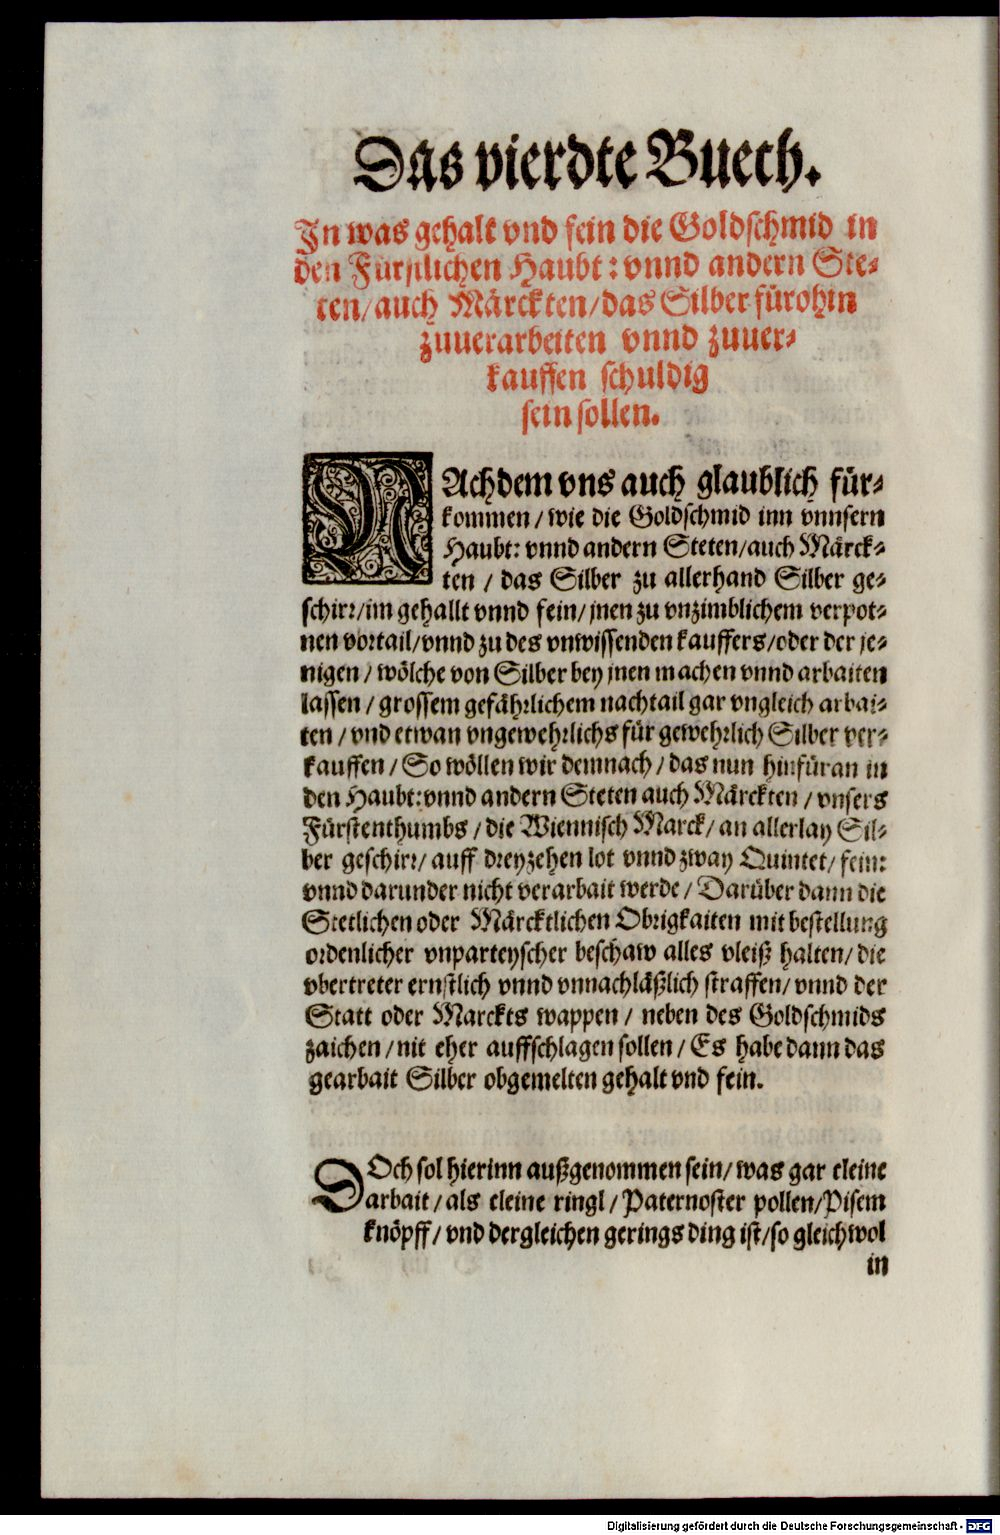 Das vierdte Buech.
In was gehalt vnd fein die Goldschmid in
den Fürstlichen Haubt: vnnd andern Ste-
ten/auch Märckten/das Silber fürohin
zuuerarbeiten vnnd zuuer-
kauffen schuldig
sein sollen.
NAchdem vns auch glaublich für-
kommen/wie die Goldschmid inn vnnsern
Haubt: vnnd andern Steten/auch Märck-
ten / das Silber zu allerhand Silber ge-
schirr/im gehallt vnnd fein/jnen zu vnzimblichem verpot-
nen vortail/vnnd zu des vnwissenden kauffers/oder der je-
nigen/wölche von Silber bey jnen machen vnnd arbaiten
lassen/grossem gefährlichem nachtail gar vngleich arbai-
ten/vnd etwan vngewehrlichs für gewehrlich Silber ver-
kauffen/So wöllen wir demnach/das nun hinfüran in
den Haubt: vnnd andern Steten auch Märckten/vnsers
Fürstenthumbs/die Wiennisch Marck/an allerlay Sil-
ber geschirr/auff dreyzehen lot vnnd zway Quintet/fein:
vnnd darunder nicht verarbait werde/Darüber dann die
Stetlichen oder Märcktlichen Obrigkaiten mit bestellung
ordenlicher vnparteyscher beschaw alles vleiß halten/die
vbertreter ernstlich vnnd vnnachläßlich straffen/vnnd der
Statt oder Marckts wappen/neben des Goldschmids
zaichen/nit eher auffschlagen sollen/Es habe dann das
gearbait Silber obgemelten gehalt vnd fein.
DOch sol hierinn außgenommen sein/was gar cleine
arbait/als cleine ringl/Paternoster pollen/Pisem
knöpff/vnd dergleichen gerings ding ist/so gleichwol
in
Digitalisierung gefördert durch die Deutsche Forschungsgemeinschaft - DFG